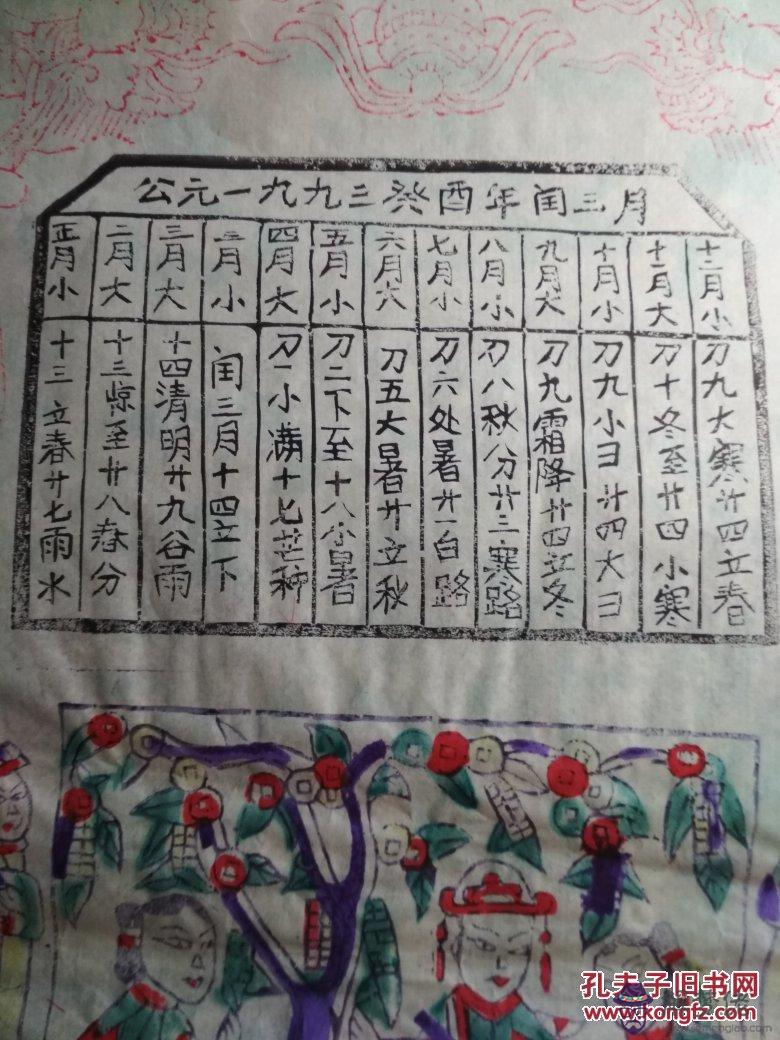 公元一九九三癸酉年闰三月
正月小
二月大
三月大
三月小
四月大
五月小
六月大
七月小
八月小
九月大
十月小
十一月大
十二月小
十三立春廿七雨水
十三惊至廿八春分
十四清明廿九谷雨
闰三月十四立下
刀一小满十七芒种
刀二下至十八小暑
刀五大暑廿立秋
刀六处暑廿一白路
刀八秋分廿三寒路
刀九霜降廿四立冬
刀九小彐廿四大彐
刀十冬至廿四小寒
刀九大寒廿四立春
孔夫子旧书网
www.kongfz.com